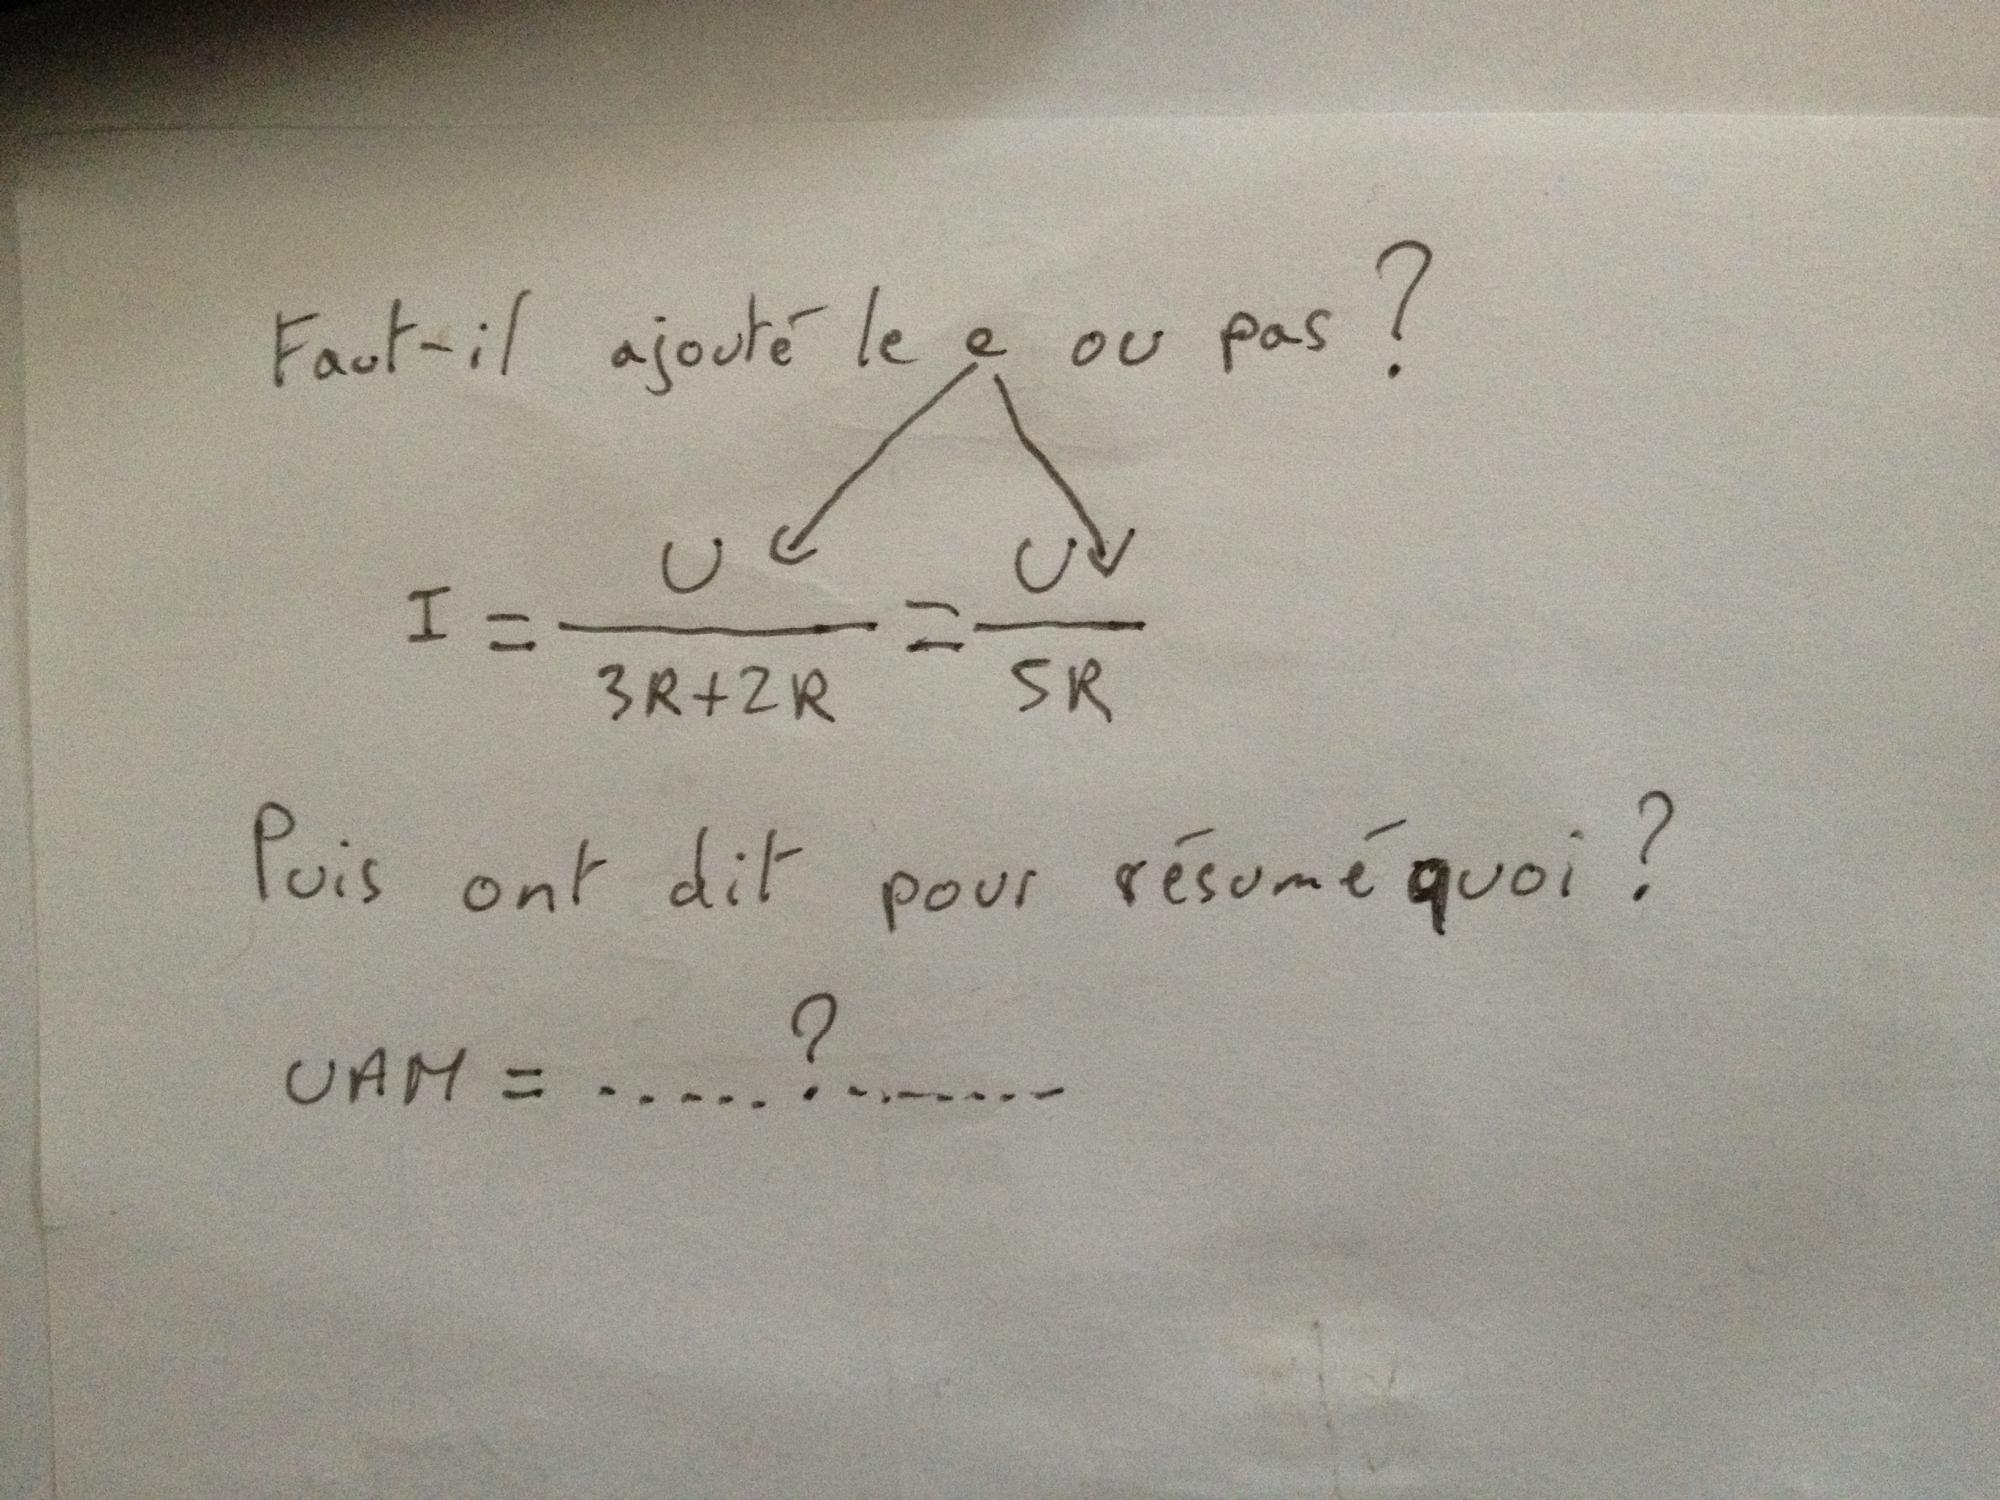 Faut-il ajouté le e ou pas ?
I = U / 3R+2R = U / 5R
Puis ont dit pour résumé quoi ?
UAM = ......?........